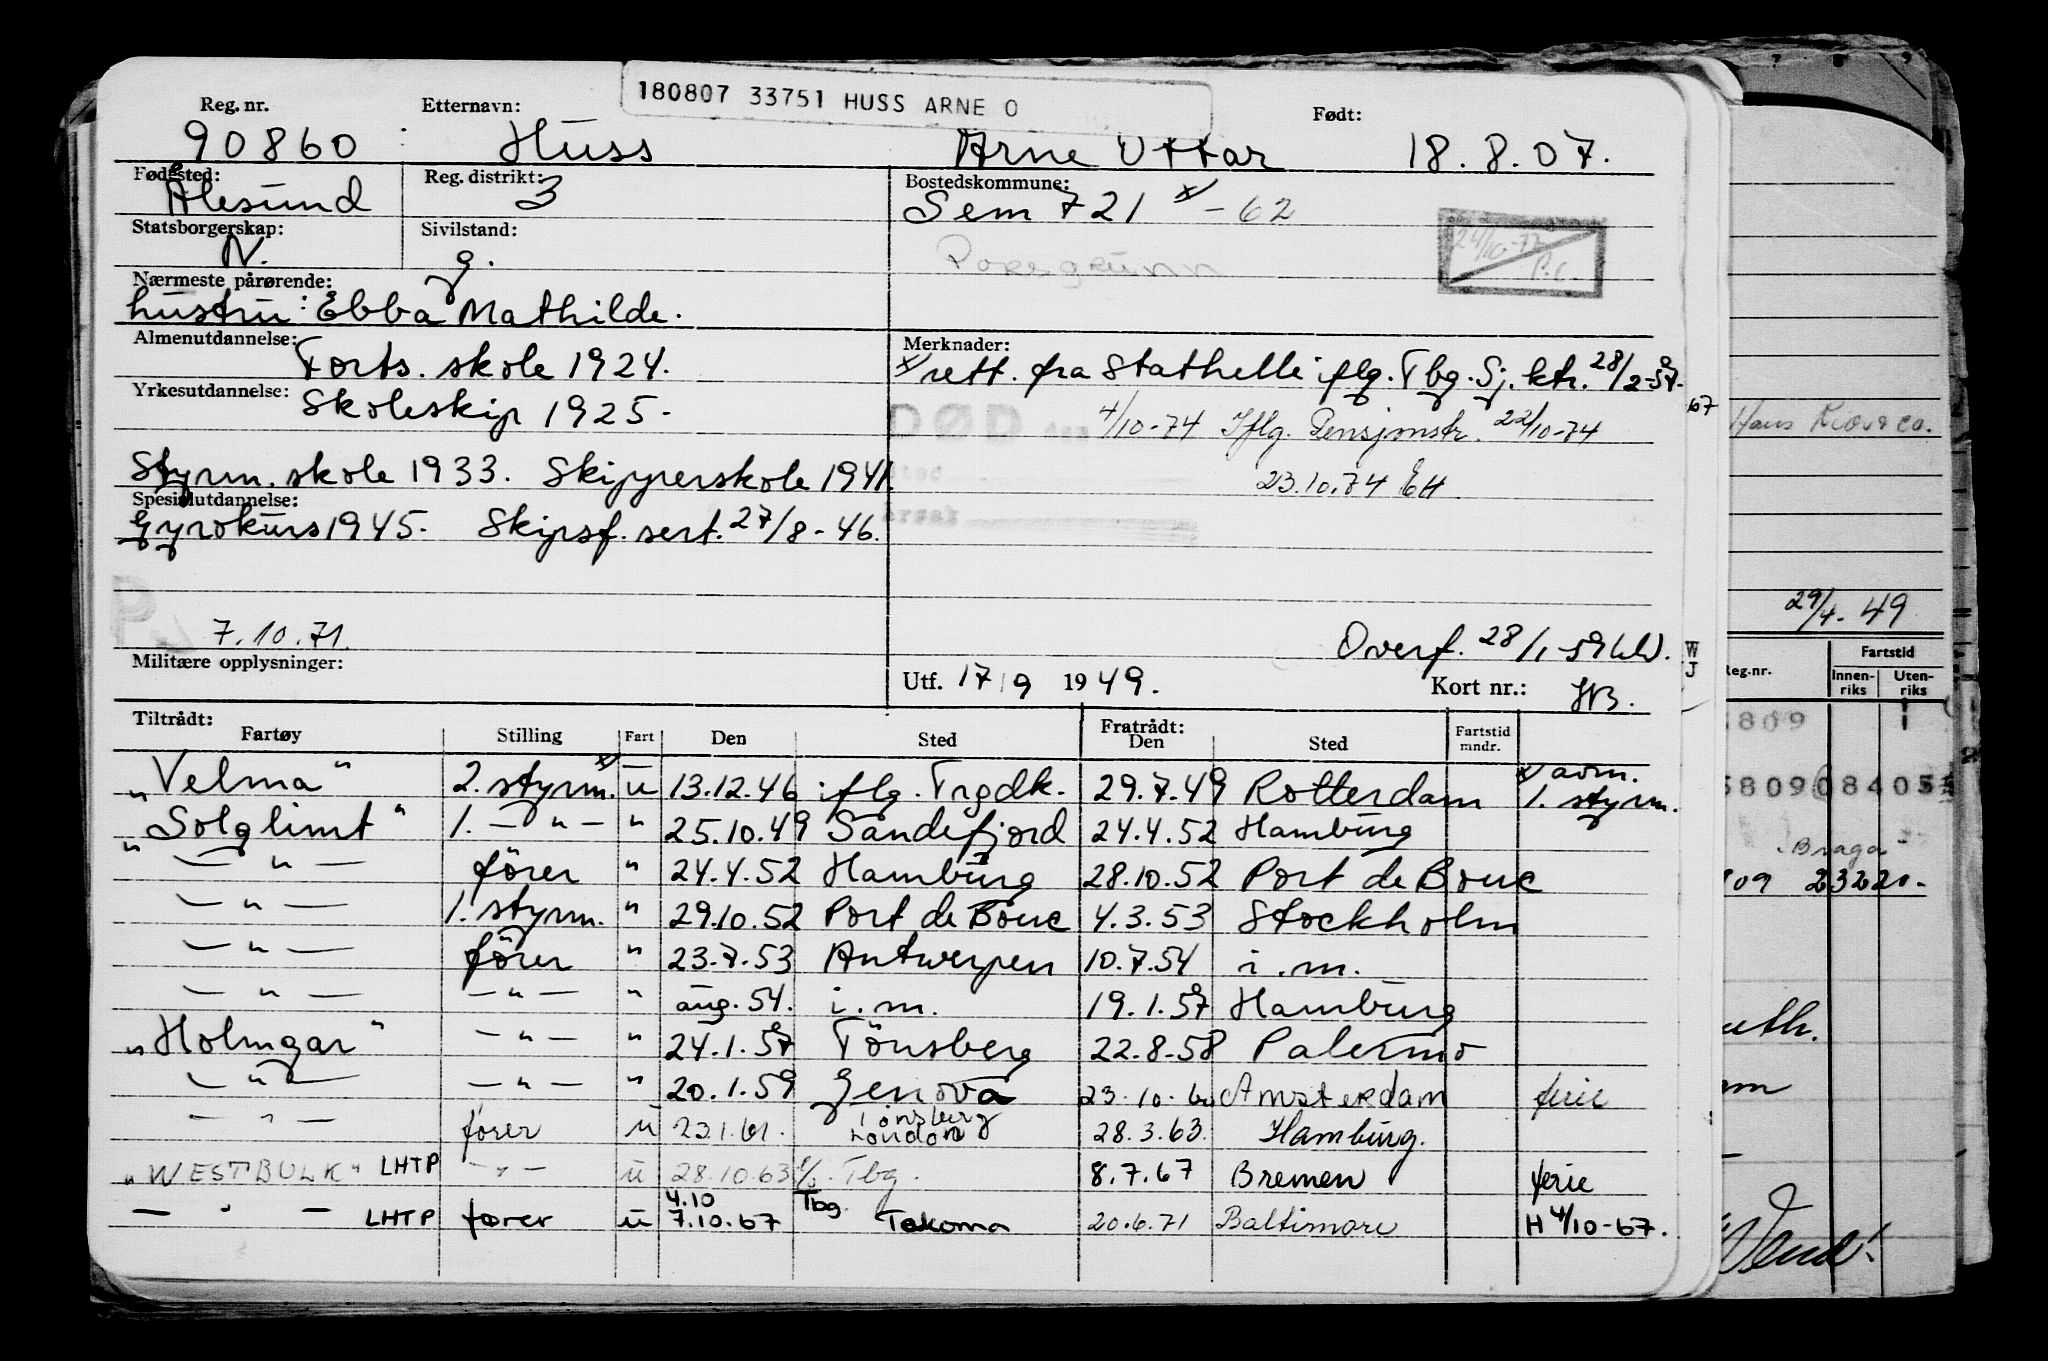 180807 33751 HUSS ARNE O
Reg. nr. Etternavn: Født:
90860 Huss Arne Ottar 18.8.07.
Fødested: Reg. distrikt: Bostedskommune:
Ålesund 3 Sem 721 x/ - 62
Statsborgerskap: Sivilstand:
N. g. Porsgrunn
24/10-72
Nærmeste pårørende:
hustru: Ebba Mathilde.
Almenutdannelse: Merknader:
Forts. skole 1924. x/ rett. fra Stathelle iflg. Tbg. Sj. ktr. 28/2-57.
67
Yrkesutdannelse:
Skoleskip 1925.
DØD den 4/10-74 Iflg. Pensjonstr. 22/10-74
Styrm. skole 1933. Skipperskole 1941.
sted 23.10.74 EH
Spesialutdannelse:
Gyrokurs 1945. Skipsf. sert. 27/8-46.
årsak
7.10.71.
Overf. 28/1-59
Militære opplysninger:
Utf. 17/9 1949. Kort nr.:
W
J
Tiltrådt: Fratrådt:
Fartøy Stilling Fart Den Sted Den Sted Fartstid mndr.
"Velma" 2. styrm. x/ u 13.12.46 iflg. Trgdk. 29.7.49 Rotterdam x/ avm. 1. styrm.
"Solglimt" 1. — " — " 25.10.49 Sandefjord 24.4.52 Hamburg
— " — fører " 24.4.52 Hamburg 28.10.52 Port de Bouc
— " — 1. styrm. " 29.10.52 Port de Bouc 4.3.53 Stockholm
— " — fører " 23.7.53 Antwerpen 10.7.54 i.m.
— " — — " — " aug. 54. i.m. 19.1.57 Hamburg
"Holmgar" — " — " 24.1.57 Tönsberg 22.8.58 Palermo
— " — — " — " 20.1.59 Genova 23.10.60 Amsterdam ferie
— " — fører u 23.1.61. Tønsberg London 28.3.63. Hamburg.
"WESTBULK" LHTP — " — u 28.10.63 Tbg. 8.7.67 Bremen ferie
— " — LHTP fører u 4.10 7.10.67 Tbg. Takoma 20.6.71 Baltimore H 4/10-67.
29/4-49
Reg.nr. Fartstid
Innenriks Utenriks
"Braga"